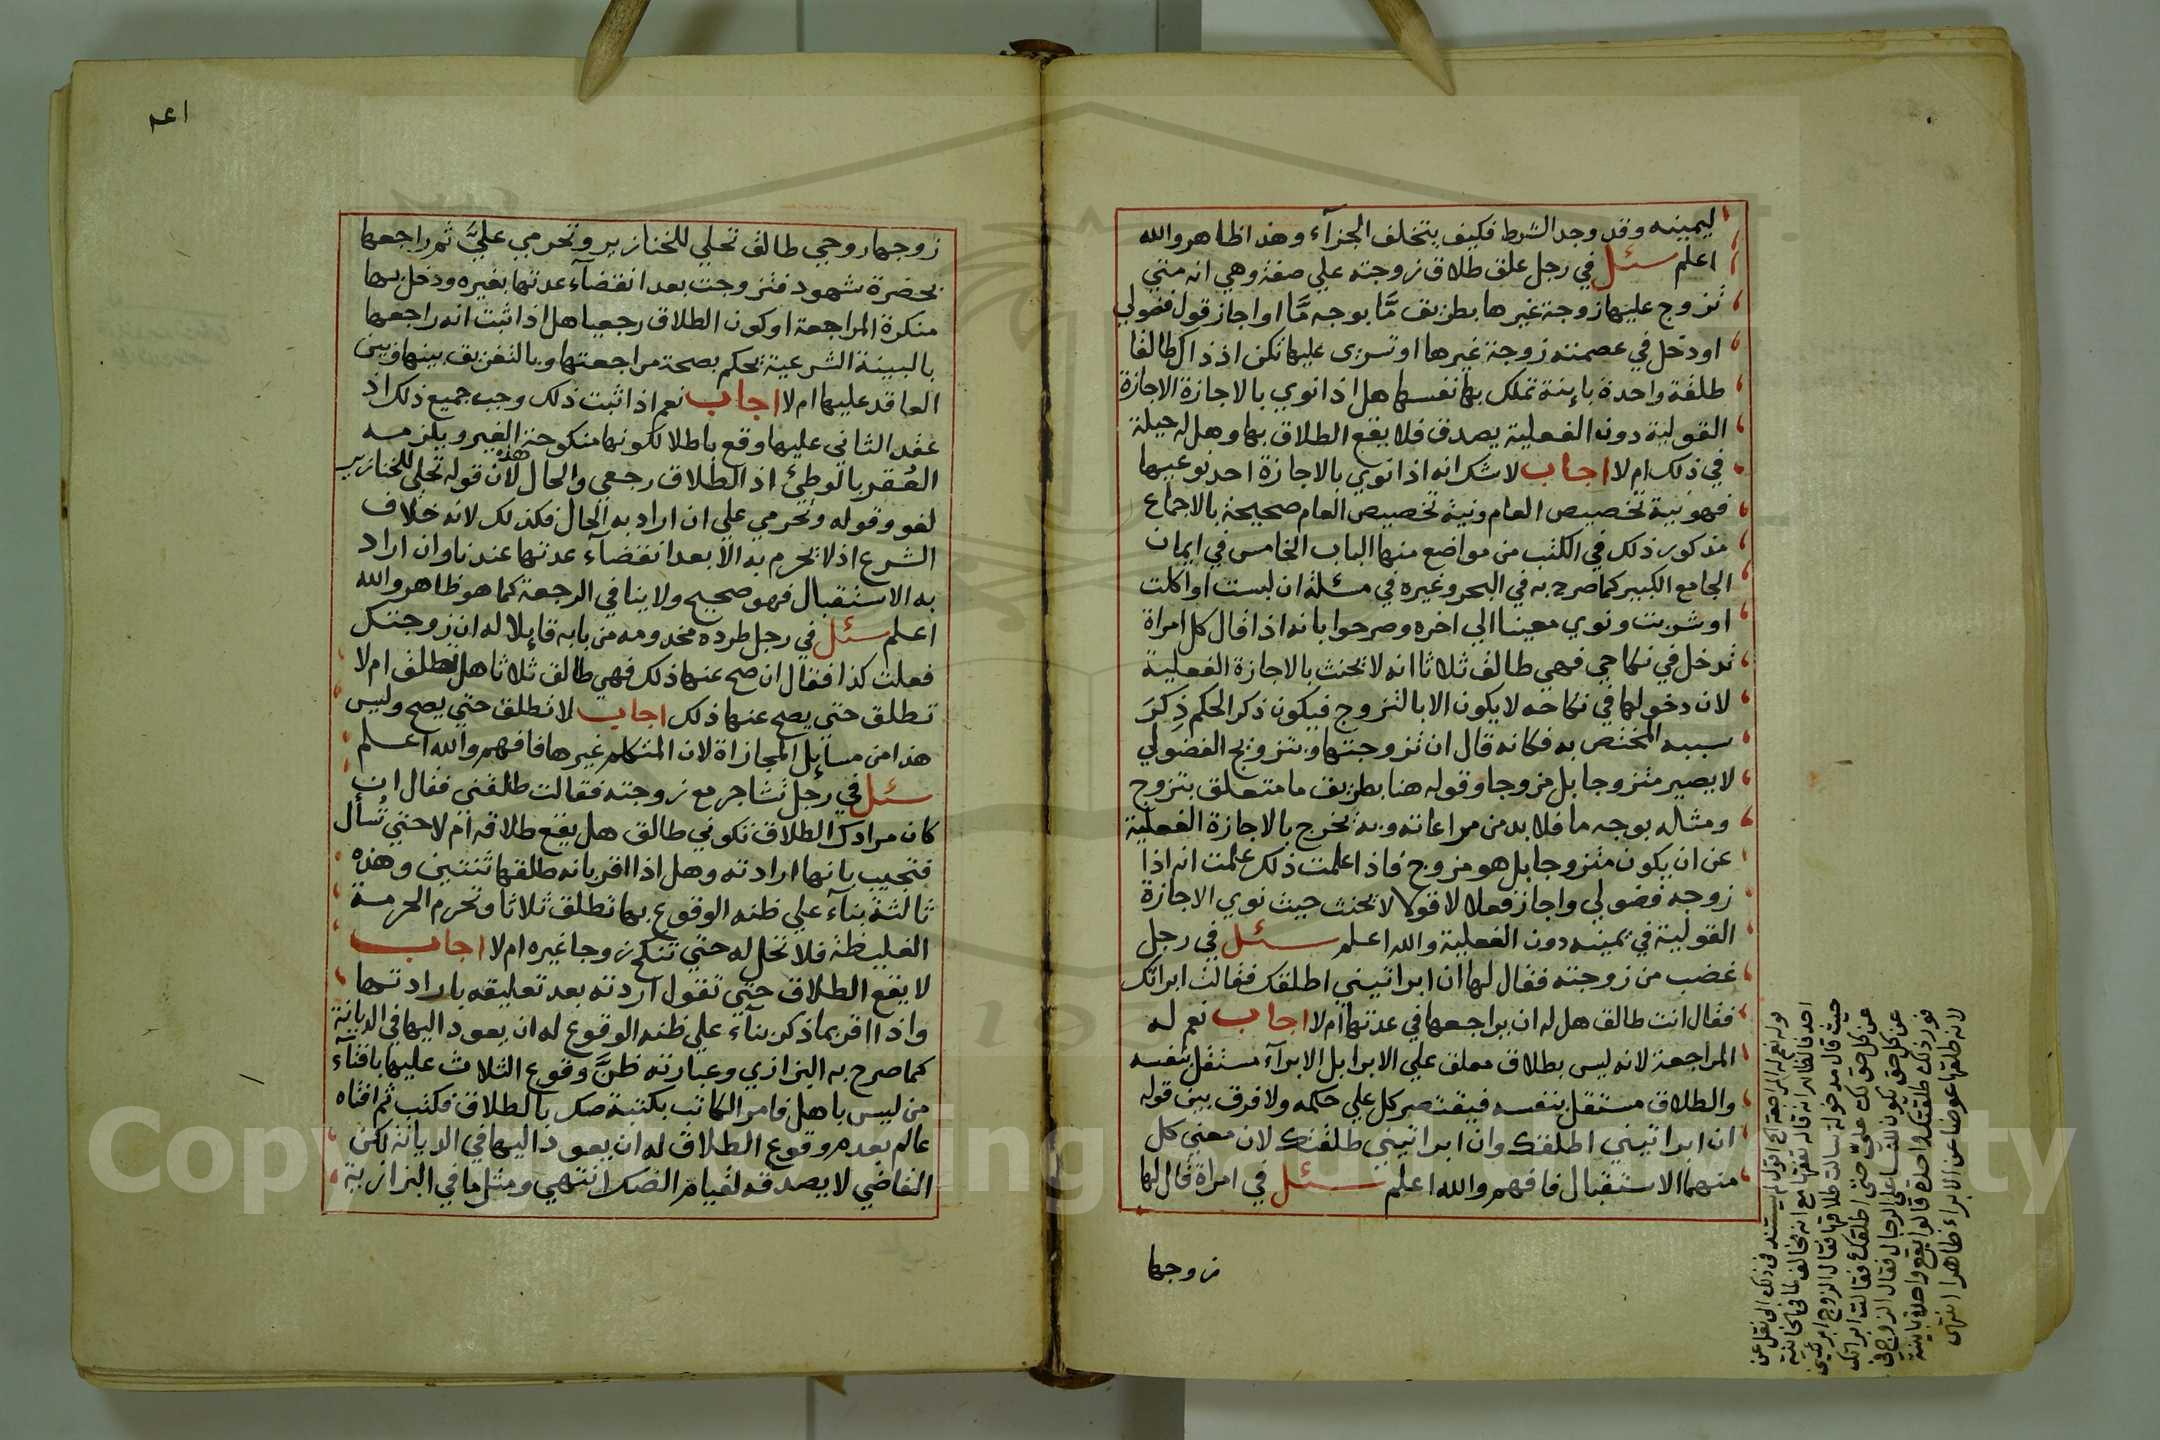 ليمينه وقد وجد الشرط فكيف يتخلف الجزآء وهذا ظاهر والله
اعلم سئل في رجل علق طلاق زوجته علي صفة وهي انه متي
تزوج عليها زوجة غيرها بطريق مّا بوجه مّا او اجاز قول فضولي
او دخل في عصمته زوجة غيرها او تسري عليها تكن اذ ذاك طالقا
طلقة واحدة باينة تملك بها نفسها هل اذا نوي بالاجازة الاجازة
القولية دون الفعلية يصدق فلا يقع الطلاق بها وهل له حيلة
في ذلك ام لا اجاب لا شك انه اذا نوي بالاجازة احد نوعيها
فهو نية تخصيص العام ونية تخصيص العام صحيحة بالاجماع
مذكور ذلك في الكتب من مواضع منها الباب الخامس في ايمان
الجامع الكبير كما صرح به في البحر وغيره في مسئلة ان لبست او اكلت
او شربت ونوي معينا الي اخره وصرحوا بانه اذا قال كل امراة
تدخل في نكاحي فهي طالق ثلاثا انه لا يحنث بالاجازة الفعلية
لان دخولها في نكاحه لا يكون الا بالتزوج فيكون ذكر الحكم ذِكرَ
سببه المختص به فكانه قال ان تزوجتها وبتزويج الفضولي
لا يصير متزوجا بل مزوجا وقوله هنا بطريق ما متعلق بتزوج
ومثاله بوجه ما فلا بد من مراعاته وبه يخرج بالاجازة الفعلية
عن ان يكون متزوجا بل هو مزوج فاذا علمت ذلك علمت انه اذا
زوجه فضولي واجاز فعلا لا قولا لا يحنث حيث نوي الاجازة
القولية في يمينه دون الفعلية والله اعلم سئل في رجل
غضب من زوجته فقال لها ان ابراتيني اطلقك فقالت ابراتك
فقال انت طالق هل له ان يراجعها في عدتها ام لا اجاب نعم له
المراجعة لانه ليس بطلاق معلق علي الابرا بل الابرآء مستقل بنفسه
والطلاق مستقل بنفسه فيقتصر كل علي حكمه ولا فرق بين قوله
ان ابراتيني اطلقك وان ابراتيني طلقتك لان معني كل
منهما الاستقبال فافهم والله اعلم سئل في امراة قال لها
زوجها
قوله نعم له المراجعة الخ اقول لم يستند في ذلك الى نقل عن
احد فالظاهر انه قاله تفقها مع انه مخالف لما في الخانية
حيث قال مدخولة سالت طلاقها فقال الزوج ابريني
عن كل حق لك عليّ حتى اطلقك فقالت ابراتك
عن كل حق يكون للنساء على الرجال فقال الزوج في
فور ذلك طلقتك واحدة قالوا يقع واحدة باينة
لانه طلقها عوضا عن الابراء ظاهرا انتهى
زوجها روحي طالق تحلي للخنازير وتحرمي عليَّ ثم راجعها
بحضرة شهود فتزوجت بعد انقضآء عدتها بغيره ودخل بها
منكرة المراجعة او كون الطلاق رجعيا هل اذا ثبت انه راجعها
بالبينة الشرعية يحكم بصحة مراجعتها وبالتفريق بينها وبين
العاقد عليها ام لا اجاب نعم اذا ثبت ذلك وجب جميع ذلك اذ
عقد الثاني عليها وقع باطلا لكونها منكوحة الغير ويلزمه
العُقر بالوطئ اذ الطلاق رجعي والحال هذه لان قوله تحلي للخنازير
لغو وقوله وتحرمي علي ان اراد به الحال فكذلك لانه خلاف
الشرع اذ لا تحرم به الا بعد انقضآء عدتها عندنا وان اراد
به الاستقبال فهو صحيح ولا ينافي الرجعة كما هو ظاهر والله
اعلم سئل في رجل طرده مخدومه من بابه قايلا له ان زوجتك
فعلت كذا فقال ان صح عنها ذلك فهي طالق ثلاثا هل تطلق ام لا
تطلق حتي يصح عنها ذلك اجاب لا تطلق حتي يصح وليس
هذا من مسايل المجازاة لان المتكلم غيرها فافهم والله اعلم
سئل في رجل تشاجر مع زوجته فقالت طلقني فقال ان
كان مرادك الطلاق تكوني طالق هل يقع طلاقه ام لا حتي تُسأل
فتجيب بانها ارادته وهل اذا اقر بانه طلقها ثنتين وهذه
ثالثة بناء علي ظنه الوقوع بها تطلق ثلاثا وتحرم الحرمة
الغليظة فلا تحل له حتي تنكح زوجا غيره ام لا اجاب
لا يقع الطلاق حتي تقول اردته بعد تعليقه بارادتها
واذا اقر بما ذكر بنآء علي ظنه الوقوع له ان يعود اليها في الديانة
كما صرح به البزازي وعبارته ظنَّ وقوع الثلاث عليها بافتآء
من ليس باهل فامر الكاتب بكتبة صك بالطلاق فكتب ثم افتاه
عالم بعدم وقوع الطلاق له ان يعود اليها في الديانة لكن
القاضي لا يصدقه لقيام الصك انتهي ومثل ما في البزازية
Copyright © King Saud University